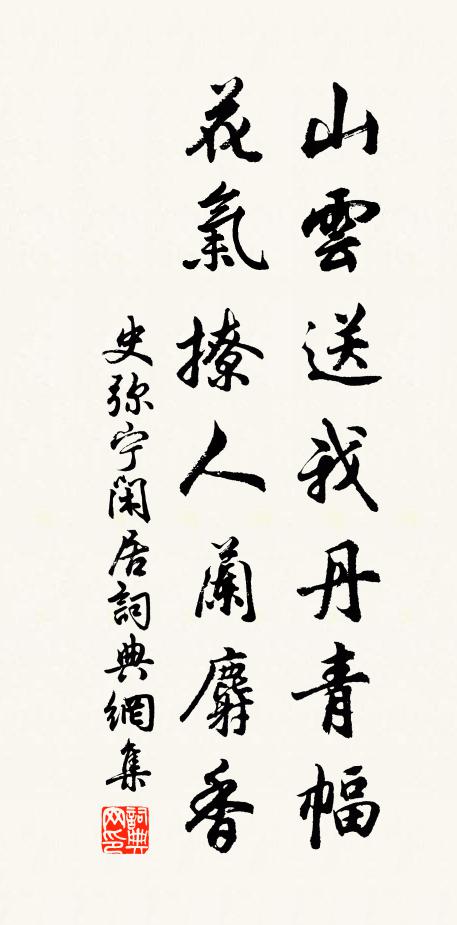 山雲送我丹青幅
花氣撩人蘭麝香
史弥宁閑居詞典網集
詞典网印